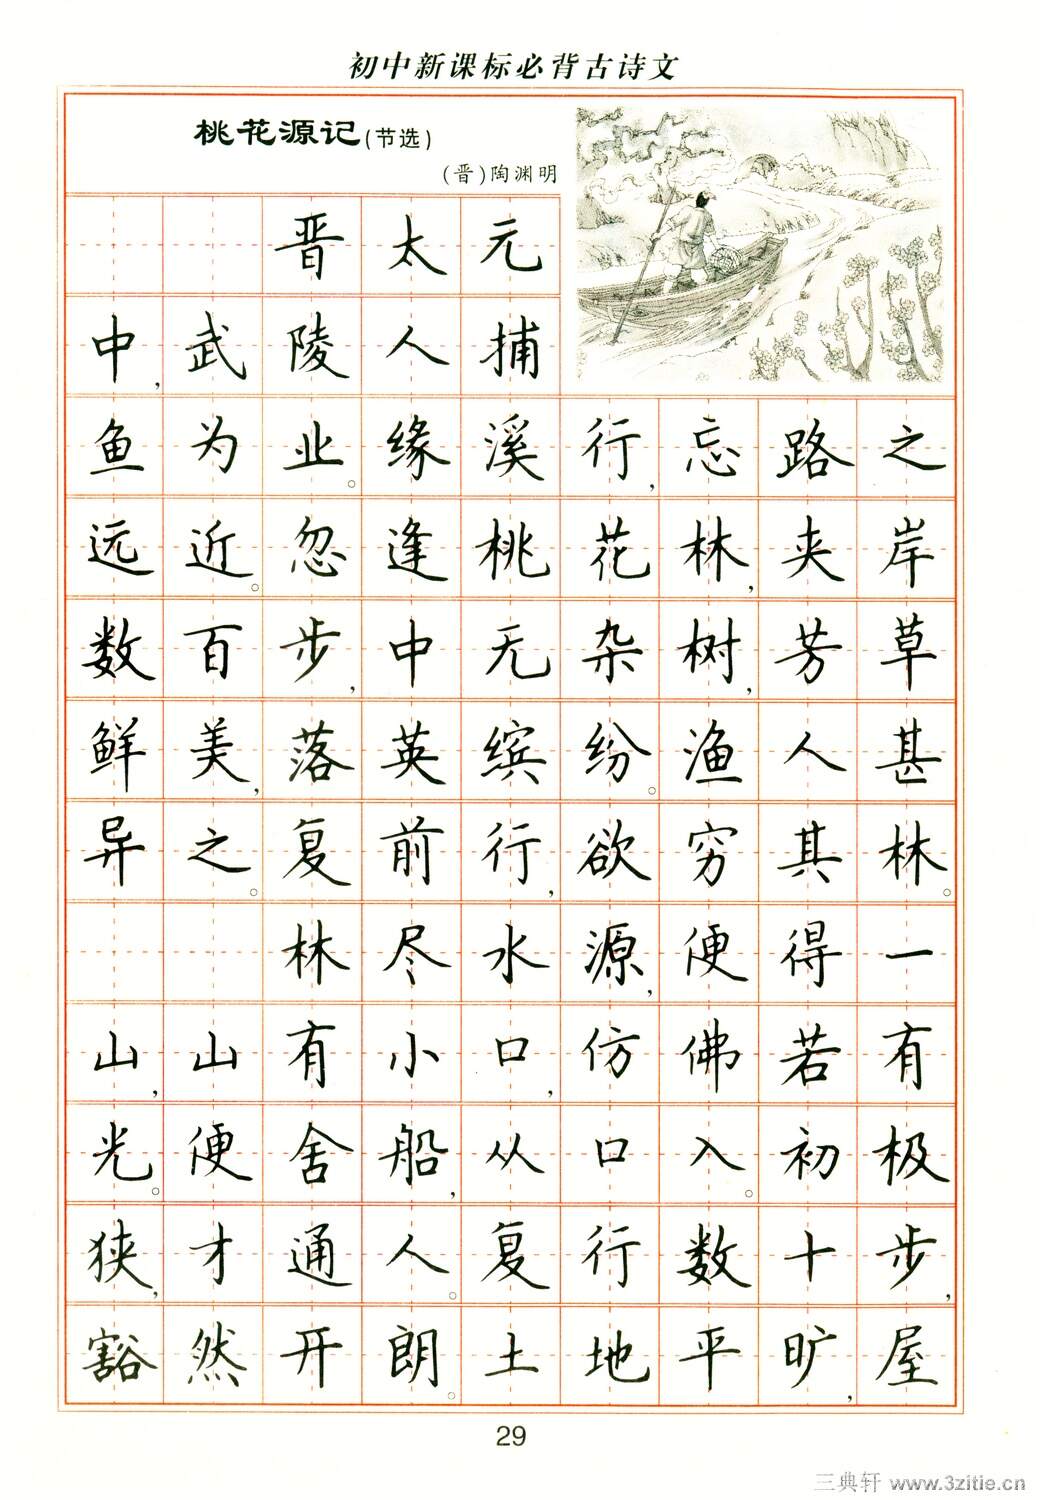 初中新课标必背古诗文
桃花源记(节选)
(晋)陶渊明
晋太元
中,武陵人捕
鱼为业。缘溪行,忘路之
远近。忽逢桃花林,夹岸
数百步,中无杂树,芳草
鲜美,落英缤纷。渔人甚
异之。复前行,欲穷其林。
林尽水源,便得一
山,山有小口,仿佛若有
光。便舍船,从口入。初极
狭,才通人。复行数十步,
豁然开朗。土地平旷,屋
29
三典轩 www.3zitie.cn